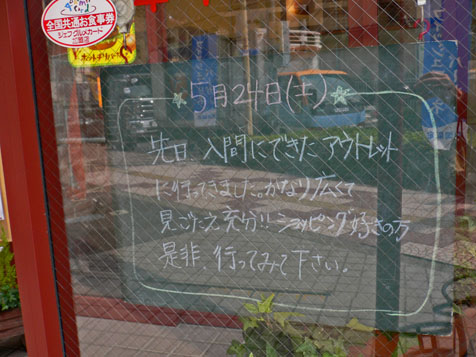 全国共通お食事券
ジェフグルメカード
5月24日(土)
先日、入間にできたアウトレット
に行ってきました。かなり広くて
見ごたえ充分!!ショッピング好きの方
是非、行ってみて下さい。